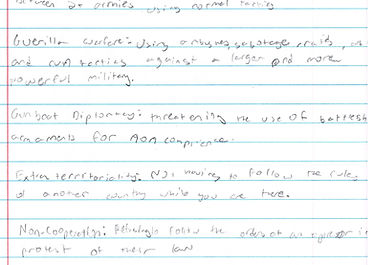 between 2 armies using normal tactics
Guerilla warfare: Using ambushes, sabotage, raids,
and run tactics against a larger and more
powerful military.
Gunboat Diplomacy: threatening the use of
armaments for non complience.
Extra territoriality: Not having to follow the rules
of another country while you are there.
Non-Cooperation: Refusing to follow the orders of an
protest of their law